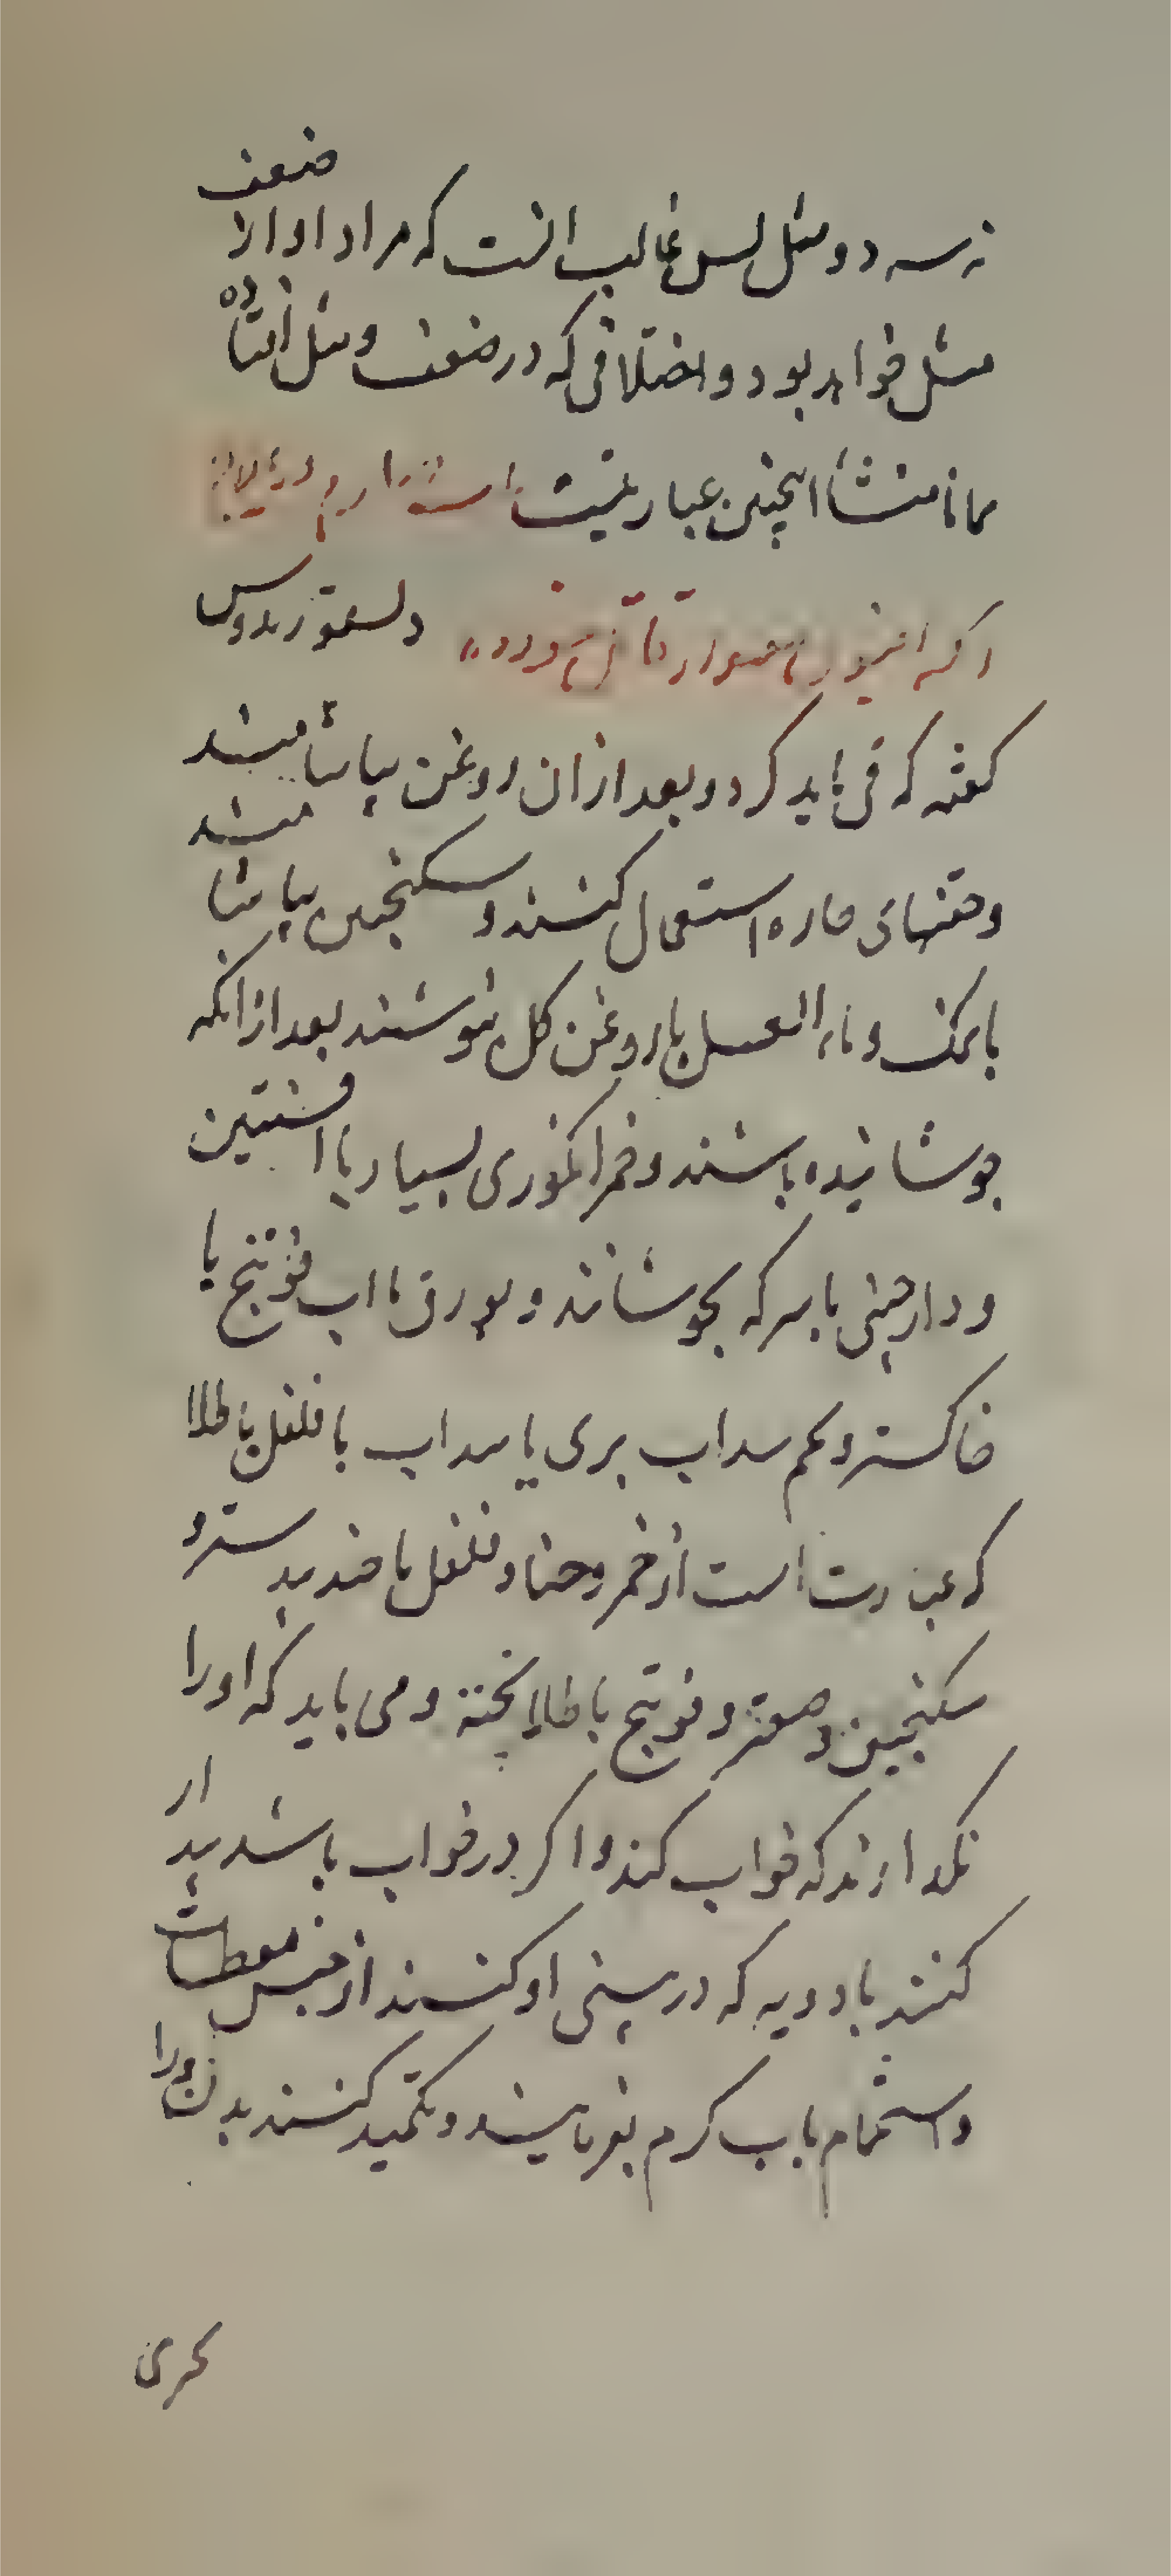 نه سه دو مثل پس غالب انست که مراد او از ضعف
مثل خواهد بود و اختلافی که در ضعف و مثل افتاده
همانا منشأ اینچنین عبارتیست
دیسقوریدوس
گفته که قی باید کرد و بعد ازان روغن بیاشامند
و حقنهای حاره استعمال کنند و سکنجبین بیاشامند
با نمک و ماء العسل با روغن گل بنوشند بعد ازانکه
جوشانیده باشند و خمر انگوری بسیار با افسنتین
و دارچینی با سرکه بجوشانند و بورق با اب فوتنج با
خاکستر و تخم سداب بری یا سداب با فلفل با طلا
که عبارت است از خمر و حنا و فلفل با جندبیدستر و
سکنجبین و صعتر و فوتنج با طلا پخته و می باید که او را
نگذارند که خواب کند و اگر در خواب باشد بیدار
کنند بادویه که در بینی او کنند از جنس معطسات
و استحمام باب گرم بفرمایند و تکمید کنند بدن او را